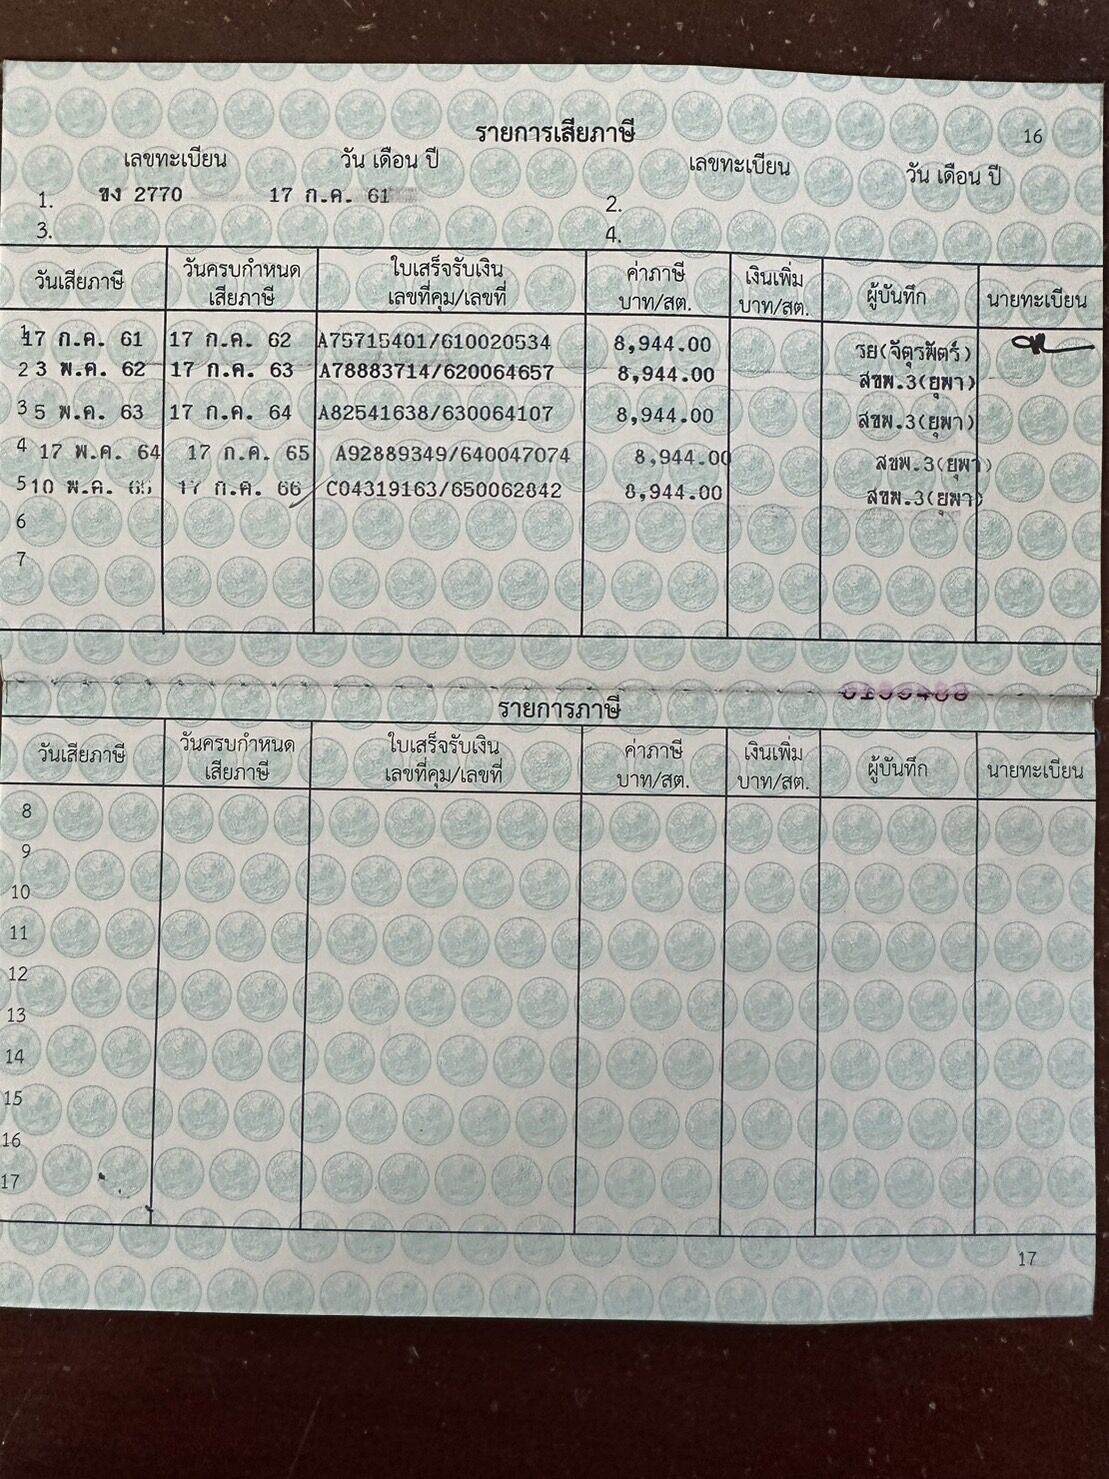 รายการเสียภาษี 16
เลขทะเบียน วัน เดือน ปี เลขทะเบียน วัน เดือน ปี
1. ขง 2770 17 ก.ค. 61 2.
3. 4.
วันเสียภาษี วันครบกำหนด เสียภาษี ใบเสร็จรับเงิน เลขที่คุม/เลขที่ ค่าภาษี บาท/สต. เงินเพิ่ม บาท/สต. ผู้บันทึก นายทะเบียน
1 17 ก.ค. 61 17 ก.ค. 62 A75715401/610020534 8,944.00 รย(จัตุรพัตร์)
2 3 พ.ค. 62 17 ก.ค. 63 A78883714/620064657 8,944.00 สขพ.3(ยุพา)
3 5 พ.ค. 63 17 ก.ค. 64 A82541638/630064107 8,944.00 สขพ.3(ยุพา)
4 17 พ.ค. 64 17 ก.ค. 65 A92889349/640047074 8,944.00 สขพ.3(ยุพา)
5 10 พ.ค. 65 17 ก.ค. 66 C04319163/650062842 8,944.00 สขพ.3(ยุพา)
6
7
รายการภาษี
วันเสียภาษี วันครบกำหนด เสียภาษี ใบเสร็จรับเงิน เลขที่คุม/เลขที่ ค่าภาษี บาท/สต. เงินเพิ่ม บาท/สต. ผู้บันทึก นายทะเบียน
8
9
10
11
12
13
14
15
16
17
17